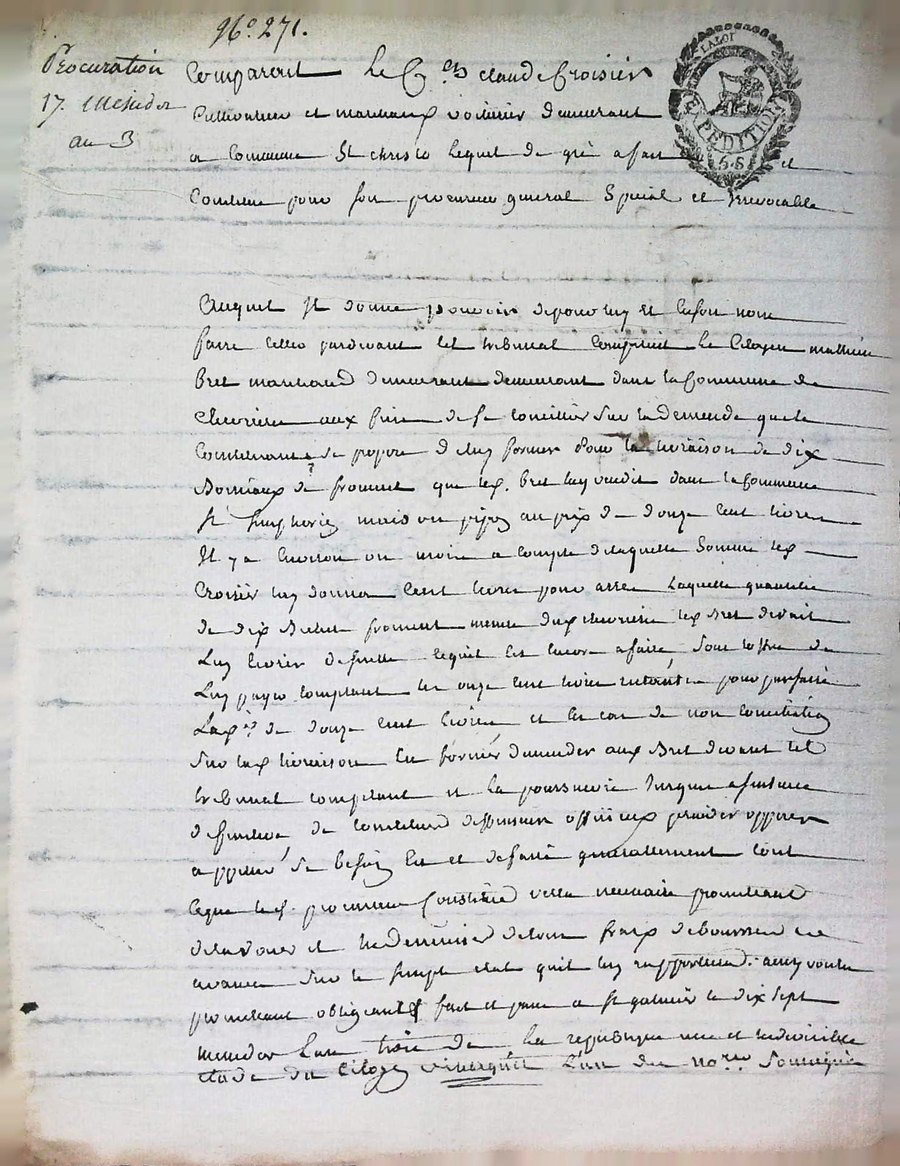 N° 271.
Procuration
17. Messidor
an 3
LA LOI
EXPEDITION
Comparait Le C.en Claude Croisier
Cultivateur et marchand voiturier demeurant
a Commune St christo lequel de gré a fait et
Constitué pour son procureur general Special et Irrevocable
auquel Il donne pouvoir de pour luy et En son nom
faire Citer pardevant le tribunal Competent Le Citoyen mathieu
Bret marchand demeurant demeurant dans la Commune de
Chevrieres aux fins de se Concilier sur la demande que le
Constituant se propose de luy former Pour la livraison de dix
de froment que led. Bret luy vendit dans la Commune
St Simphorien au prix de douze Cent livres
Il y a Environ un mois a Compte de laquelle Somme led
Croisier luy donna Cent livres pour arres Laquelle quantité
de dix froment led Bret devait
Luy livrer de suite lequel Est Encore a faire sous loffre de
Luy payer Comptant les onze Cent livres restantes pour parfaire
La de douze Cent livres et En Cas de non Conciliation
sur lad livraison En former demander aud Bret devant le
tribunal Competant et la poursuivre Jusqua sentence
definitive de Constituer deffenseur officieux plaider opposer
appeller si besoin Est et de faire generallement tout
Ceque led. procureur Constitué verra necessaire promettant
de lavouer et Indemniser de tous fraix deboursés et
avances Sur le simple etat quil luy rapportera. ainsy voulu
promettant obligeant fait et passé a St galmier le dix sept
messidor Lan trois de la republique une et indivisible
Etude du Citoyen L'un des no.res Soussignés